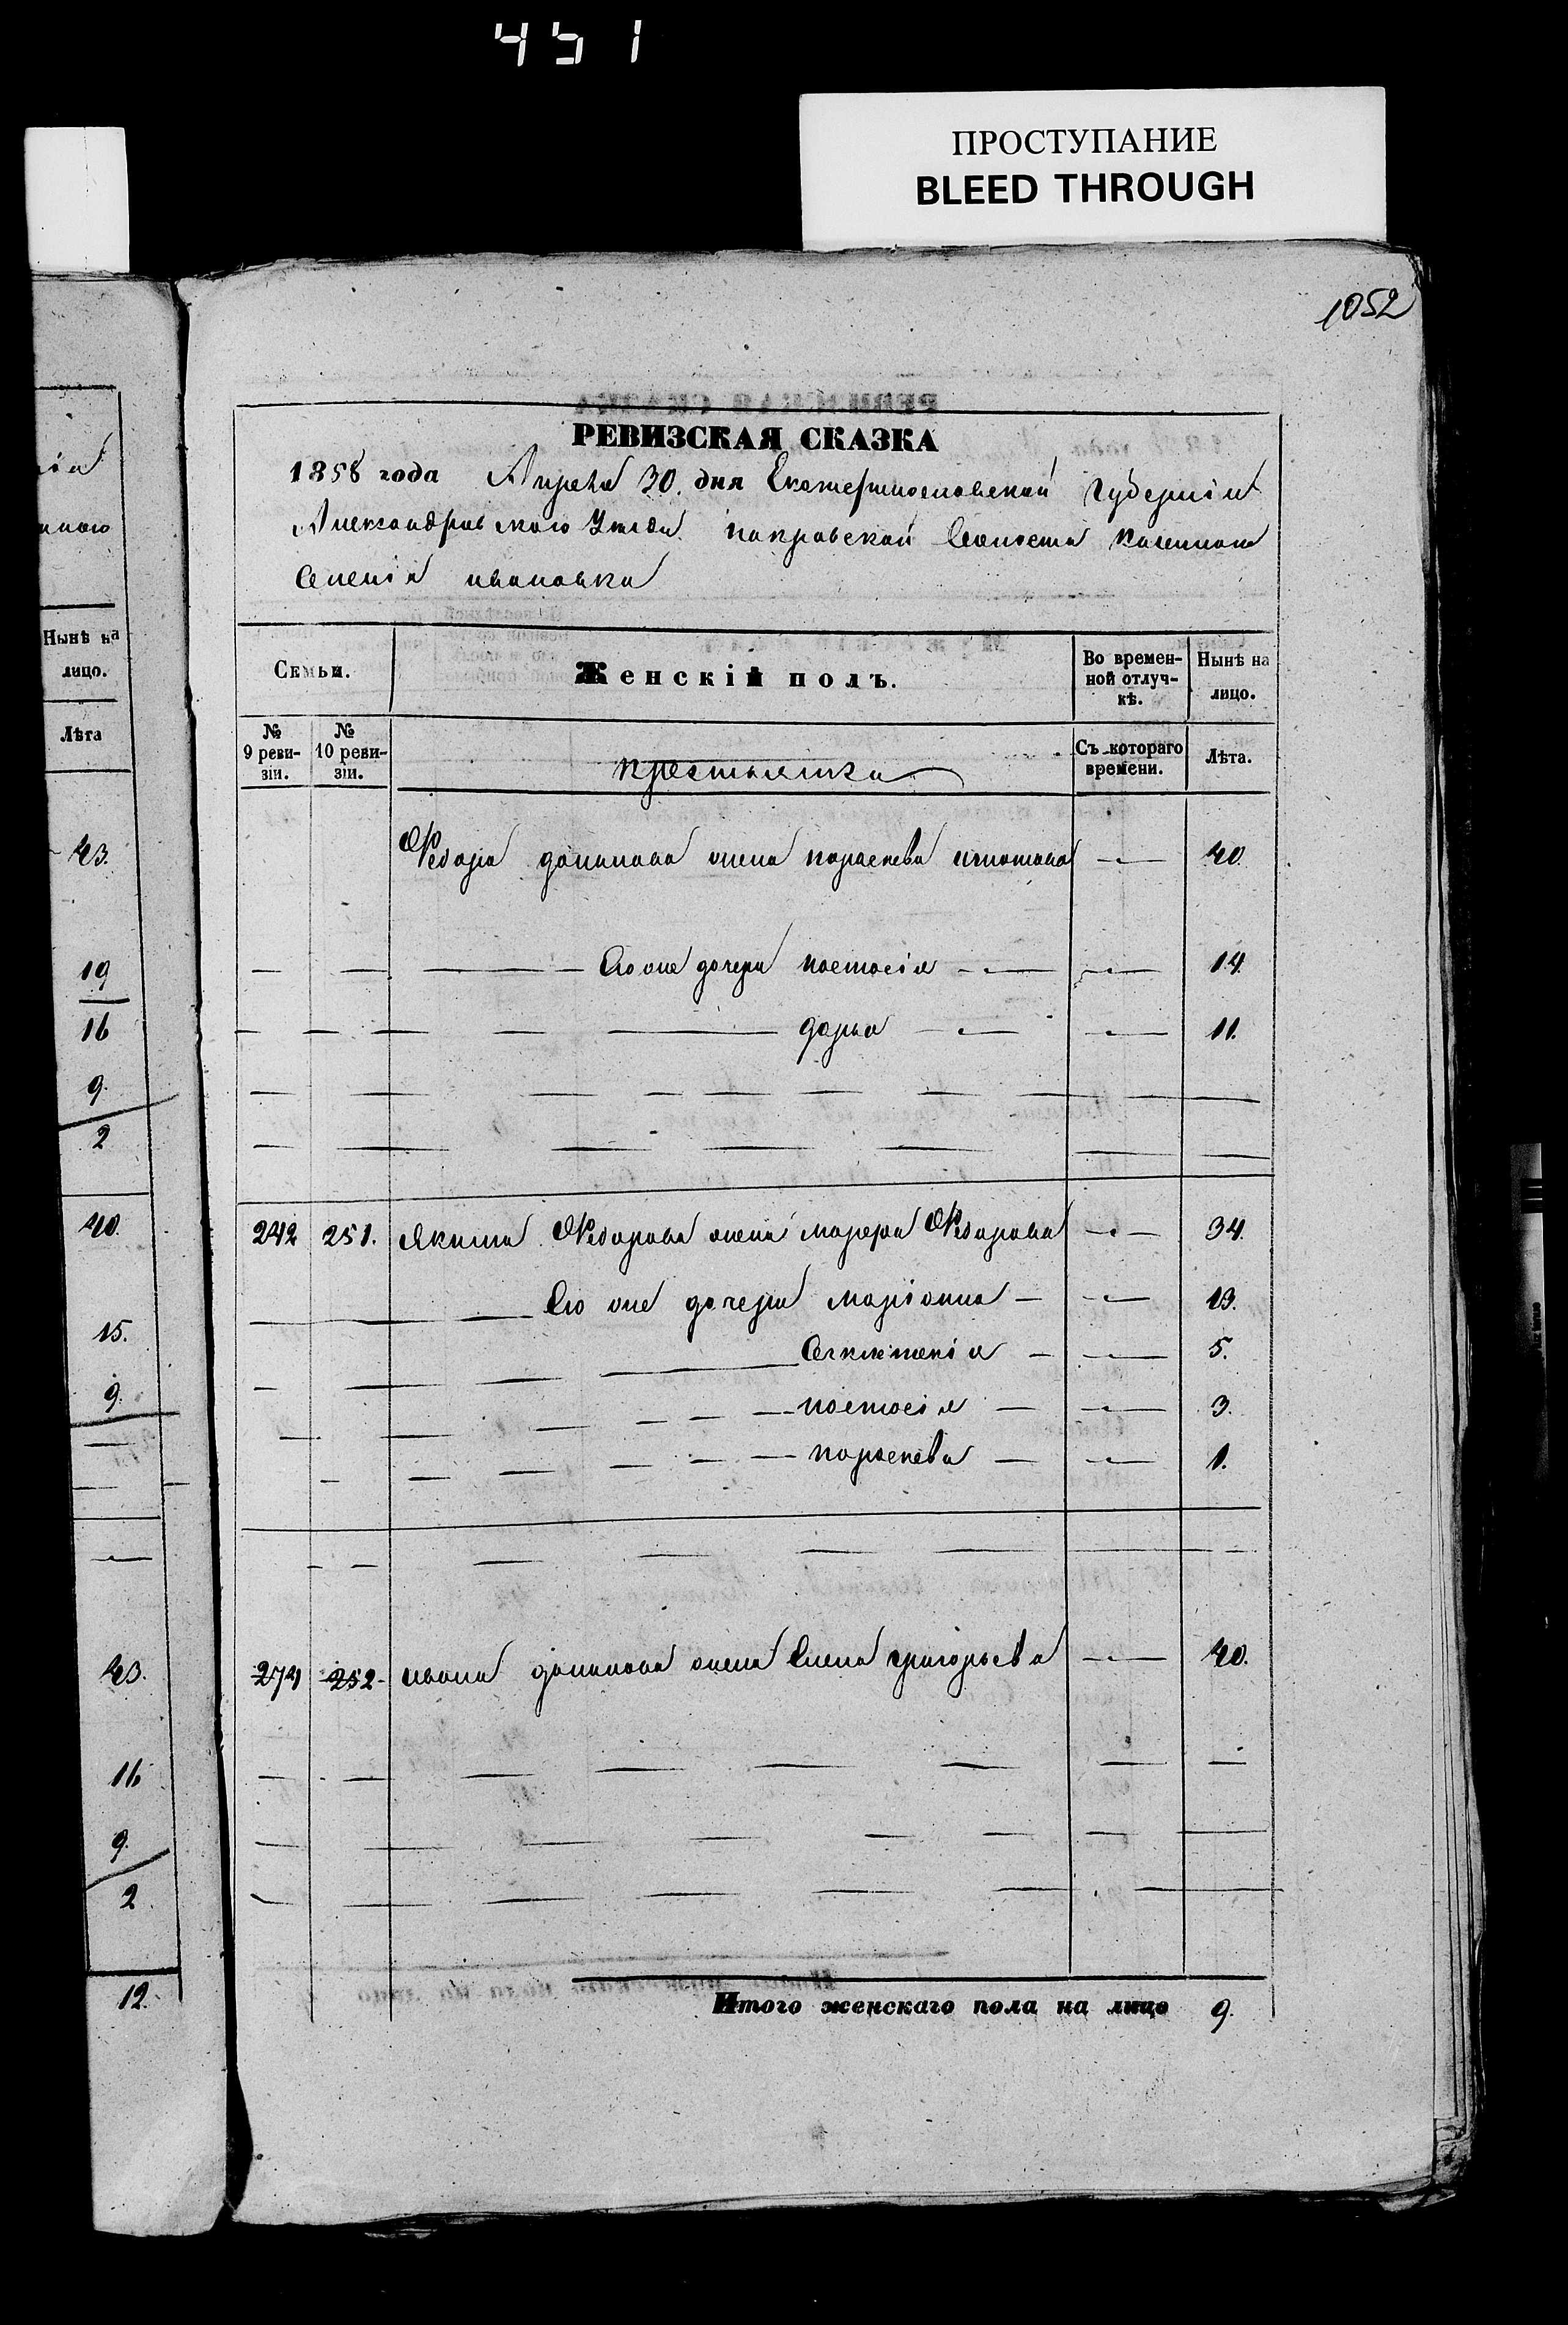 451
ПРОСТУПАНИЕ
BLEED THROUGH
1052
РЕВИЗСКАЯ СКАЗКА
1858 года Апреля 30. дня Екатеринославской Губернiи
Александровского Уезда покровской Волости казенного
Селенiя ивановки
Семьи.
Женскiй полъ.
Во времен-
ной отлуч-
кѣ.
Нынѣ на
лицо.
№
9 реви-
зiи.
№
10 реви-
зiи.
крестьянки
Съ котораго
времени.
Лѣта.
Федора данилова жена параскева игнатова 40.
Его же дочери настасiя 14.
дарья 11.
242 251. Якима Федорова жена марфа Федорова 34.
Его же дочери марiанна 13.
5.
настасiя 3.
параскева 1.
274 252 ивана данилова жена Елена григорьева 40.
Итого женскаго пола на лицо 9.
Нынѣ на
лицо.
Лѣта
43.
19
16
9.
2
40.
15.
9.
43.
16
9.
2.
12.